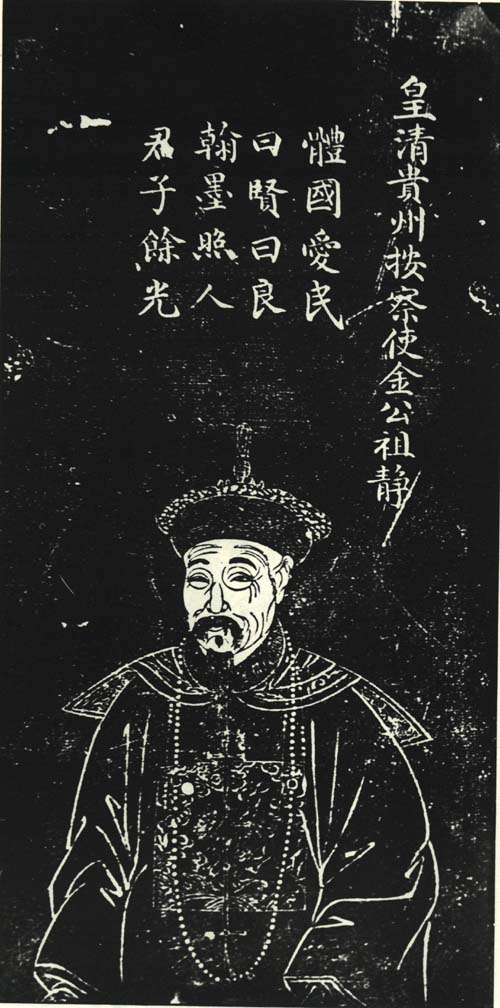 皇清貴州按察使金公祖静
體國愛民
曰賢曰良
翰墨照人
君子餘光